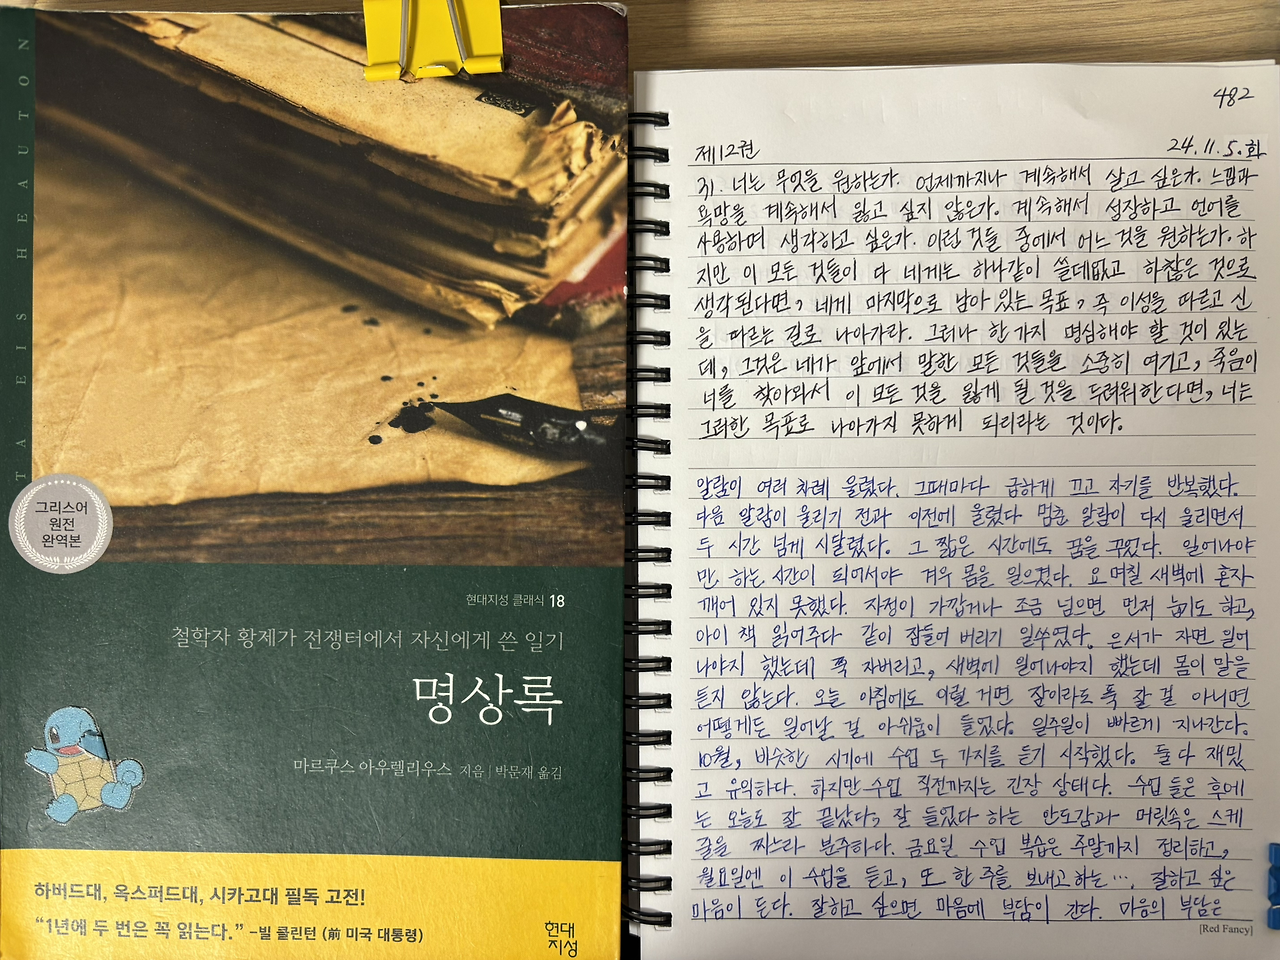 TA EIS HEAUTON
그리스어
원전
완역본
현대지성 클래식 18
철학자 황제가 전쟁터에서 자신에게 쓴 일기
명상록
마르쿠스 아우렐리우스 지음 | 박문재 옮김
하버드대, 옥스퍼드대, 시카고대 필독 고전!
“1년에 두 번은 꼭 읽는다.” –빌 클린턴 (前 미국 대통령)
현대
지성
482
제12권 24.11.5.화
31. 너는 무엇을 원하는가. 언제까지나 계속해서 살고 싶은가. 느낌과
욕망을 계속해서 잃고 싶지 않은가. 계속해서 성장하고 언어를
사용하며 생각하고 싶은가. 이런 것들 중에서 어느 것을 원하는가. 하
지만 이 모든 것들이 다 네게는 하나같이 쓸데없고 하찮은 것으로
생각된다면, 네게 마지막으로 남아 있는 목표, 즉 이성을 따르고 신
을 따르는 길로 나아가라. 그러나 한 가지 명심해야 할 것이 있는
데, 그것은 네가 앞에서 말한 모든 것들을 소중히 여기고, 죽음이
너를 찾아와서 이 모든 것을 잃게 될 것을 두려워한다면, 너는
그러한 목표로 나아가지 못하게 되리라는 것이다.
알람이 여러 차례 울렸다. 그때마다 급하게 끄고 자기를 반복했다.
다음 알람이 울리기 전과 이전에 울렸다 멈춘 알람이 다시 울리면서
두 시간 넘게 시달렸다. 그 짧은 시간에도 꿈을 꾸었다. 일어나야
만 하는 시간이 되어서야 겨우 몸을 일으켰다. 요 며칠 새벽에 혼자
깨어 있지 못했다. 자정이 가깝거나 조금 넘으면 먼저 눕기도 하고,
아이 책 읽어주다 같이 잠들어 버리기 일쑤였다. 은서가 자면 일어
나야지 했는데 푹 자버리고, 새벽에 일어나야지 했는데 몸이 말을
듣지 않는다. 오늘 아침에도 이럴 거면 잠이라도 푹 잘 걸 아니면
어떻게든 일어날 걸 아쉬움이 들었다. 일주일이 빠르게 지나간다.
10월, 비슷한 시기에 수업 두 가지를 듣기 시작했다. 둘 다 재밌
고 유익하다. 하지만 수업 직전까지는 긴장 상태다. 수업 들은 후에
는 오늘도 잘 끝났다, 잘 들었다 하는 안도감과 머릿속은 스케
줄을 짜느라 분주하다. 금요일 수업 복습은 주말까지 정리하고,
월요일엔 이 수업을 듣고, 또 한 주를 보내고 하는…. 잘하고 싶은
마음이 든다. 잘하고 싶으면 마음에 부담이 간다. 마음의 부담은
[Red Fancy]